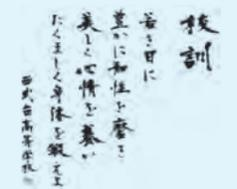 校訓
若き日に
豊かに知性を磨き
美しく心情を養い
たくましく身体を鍛えよ
西武台高等学校